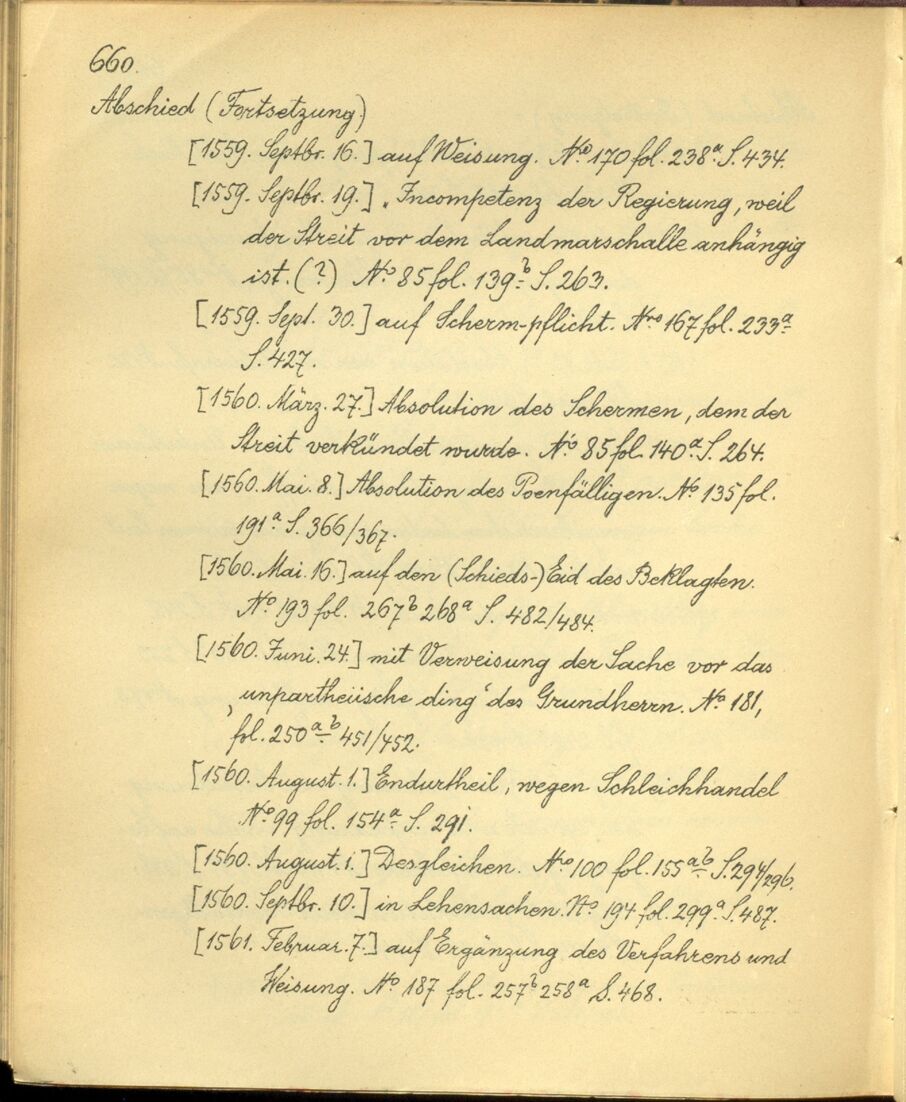 660.
Abschied (Fortsetzung)
[1559. Septbr. 16.] auf Weisung. No 170 fol. 238a. S. 434.
[1559. Septbr. 19.] „Incompetenz der Regierung, weil
der Streit vor dem Landmarschalle anhängig
ist. (?) No. 85 fol. 139b. S. 263.
[1559. Sept. 30.] auf Scherm-pflicht. Nro 167 fol. 233a
S. 427.
[1560. März. 27.] Absolution des Schermen, dem der
Streit verkündet wurde. No. 85 fol. 140a. S. 264.
[1560. Mai. 8.] Absolution des Poenfälligen. No 135 fol.
191a S. 366/367.
[1560. Mai. 16.] auf den (Schieds-) Eid des Beklagten.
No 193 fol. 267b 268a S. 482/484.
[1560. Juni. 24.] mit Verweisung der Sache vor das
„unpartheiische ding“ des Grundherrn. No 181,
fol. 250a b 451/452.
[1560. August. 1.] Endurtheil, wegen Schleichhandel
No 99 fol. 154a S. 291.
[1560. August. 1.] Desgleichen. Nro 100 fol. 155a b S. 294/296.
[1560. Septbr. 10.] in Lehensachen. No 194 fol. 299a S. 487.
[1561. Februar. 7.] auf Ergänzung des Verfahrens und
Weisung. No 187 fol. 257b 258a S. 468.